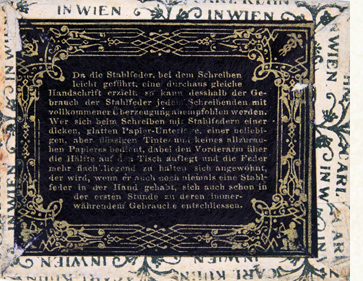 IN WIEN CARL KUHN
IN WIEN
Da die Stahlfeder, bei dem Schreiben
leicht geführt, eine durchaus gleiche
Handschrift erzielt, so kann desshalb der Ge-
brauch der Stahlfeder jedem Schreibenden mit
vollkommener Überzeugung anempfohlen werden.
Wer sich beim Schreiben mit Stahlfedern einer
dicken, glatten Papier-Unterlage, einer beliebi-
gen, aber flüssigen Tinte und keines allzurau-
hen Papieres bedient, dabei den Vorderarm über
die Hälfte auf den Tisch auflegt und die Feder
mehr flach liegend zu halten sich angewöhnt,
der wird, wenn er auch noch niemals eine Stahl-
feder in der Hand gehabt, sich auch schon in
der ersten Stunde zu deren immer-
währendem Gebrauche entschliessen.
IN WIEN
IN WIEN
CARL
IN WIEN
IN WIEN
CARL KUHN